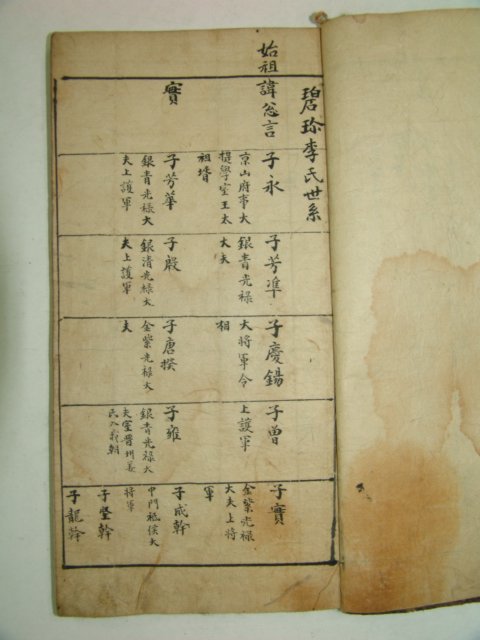 碧珍李氏世系
始祖諱悤言
子永
京山府事大
提學室王太
祖壻
子芳準
銀青光祿
大夫
子慶錫
大將軍令
相
子曽
上護軍
子實
金紫光祿
大夫上將
軍
實
子芳華
銀青光祿大
夫上護軍
子殷
銀清光綠大
夫上護軍
子唐揆
金紫光祿大
夫
子雍
銀青光祿大
夫室晋州姜
民入我朝
子成幹
中門祗侯大
將軍
子堅幹
子龍幹